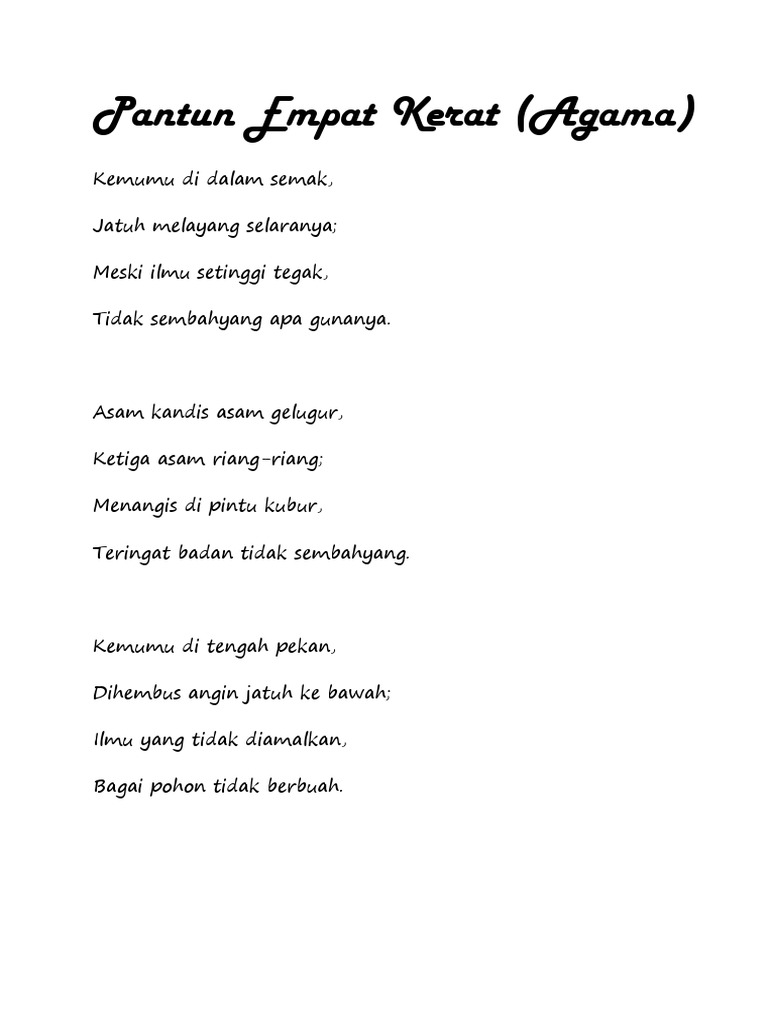 Pantun Empat Kerat (Agama)
Kemumu di dalam semak,
Jatuh melayang selaranya;
Meski ilmu setinggi tegak,
Tidak sembahyang apa gunanya.
Asam kandis asam gelugur,
Ketiga asam riang-riang;
Menangis di pintu kubur,
Teringat badan tidak sembahyang.
Kemumu di tengah pekan,
Dihembus angin jatuh ke bawah;
Ilmu yang tidak diamalkan,
Bagai pohon tidak berbuah.